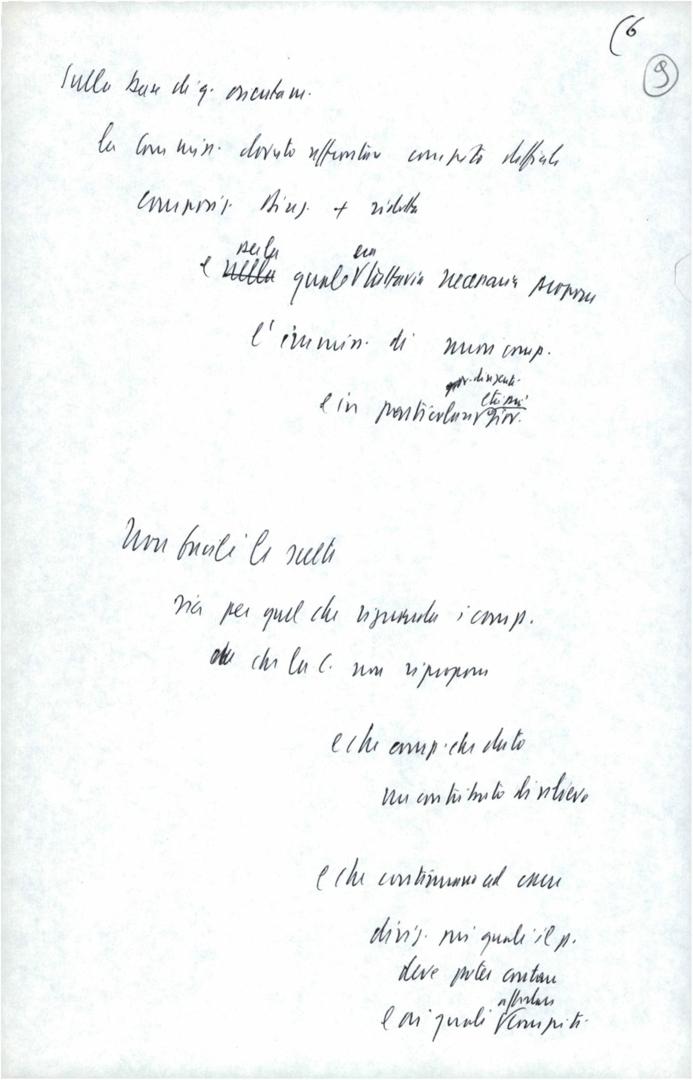 (6
9
Sulla base di q. orientam.
la Commiss. dovuto affrontare compito difficile
composiz. più ridotta
nella era
e nella quale tuttavia necessario proporre
l'immiss. di nuovi comp.
dirigenti
e in particolare giov.
Non facili le scelte
sia per quel che riguarda i comp.
che la C. non ripropone
e che comp. che dato
un contributo di rilievo
e che continuano ad essere
dirig. sui quali il p.
deve poter contare
affidare
e ai quali compiti